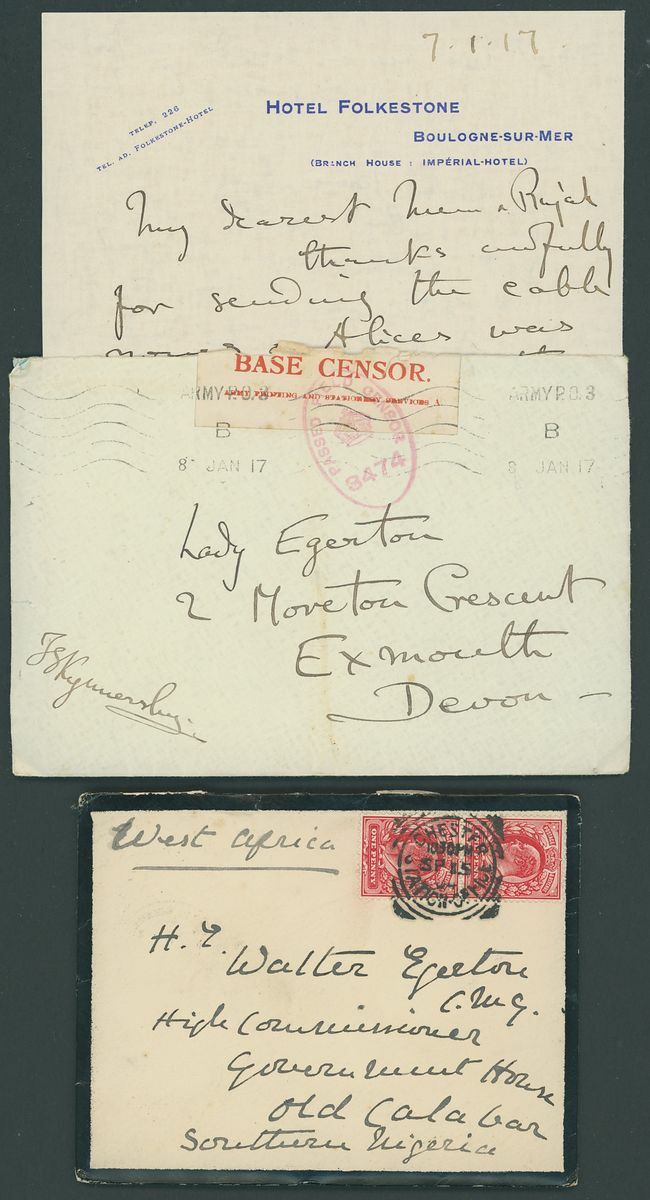 7.1.17.
TELEP. 226
TEL. AD. FOLKESTONE-HOTEL
HOTEL FOLKESTONE
BOULOGNE-SUR-MER
(BRANCH HOUSE : IMPÉRIAL-HOTEL)
My dearest Mum & Rajah
thanks awfully
for sending the cable
Alices was
BASE CENSOR.
PASSED FIELD CENSOR
3474
ARMY P.O. 3
B
8 JAN 17
ARMY P.O. 3
B
8 JAN 17
Lady Egerton
2 Moreton Crescent
Exmouth
Devon –
Kynnersley
West Africa
ONE PENNY
CHESTER
SP 15
H.E.
Walter Egerton
C.M.G.
High Commissioner
Government House
Old Calabar
Southern Nigeria